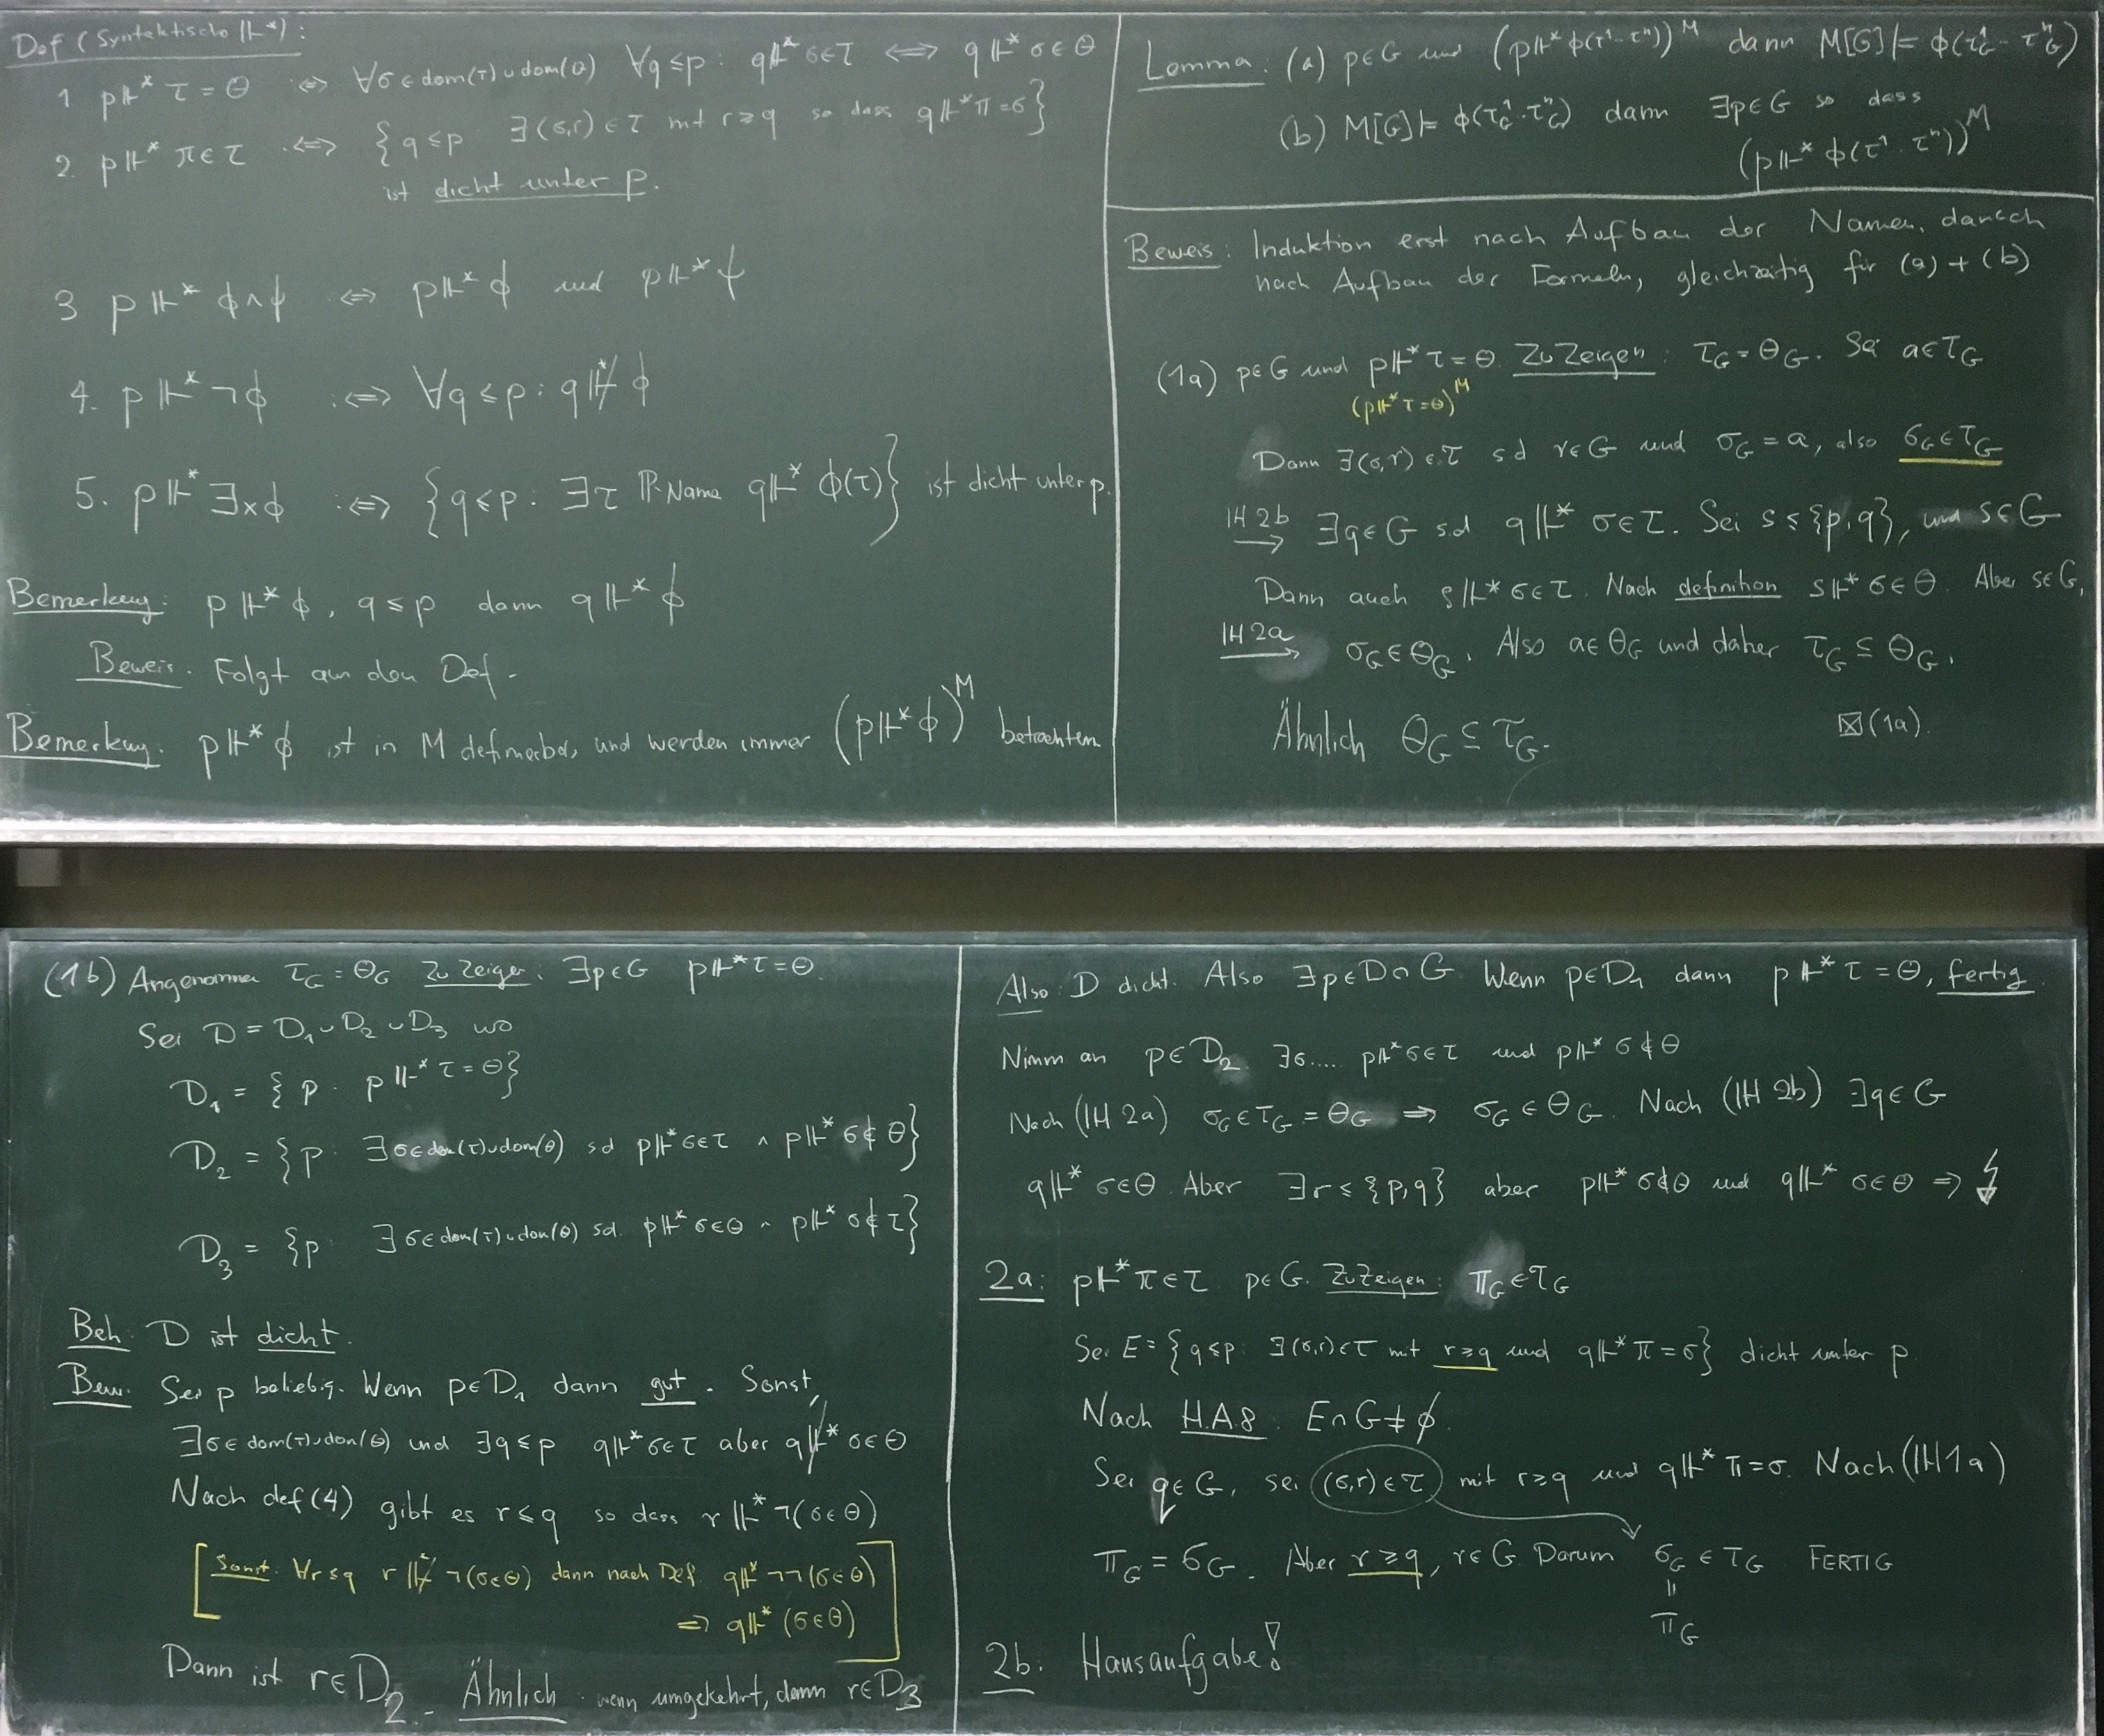 Def (Syntaktische ⊩*):
1 p⊩* τ = Θ ⇔ ∀σ∈dom(τ)∪dom(Θ) ∀q≤p: q⊩* σ∈τ ⟺ q⊩* σ∈Θ
2. p⊩* π∈τ :⟺ {q≤p ∃(σ,r)∈τ mit r≥q so dass q⊩* π=σ}
ist dicht unter p.
3 p⊩* ϕ∧ψ ⇔ p⊩* ϕ und p⊩* ψ
4. p⊩* ¬ϕ :⟺ ∀q≤p: q⊮* ϕ
5. p⊩* ∃xϕ :⟺ {q≤p: ∃τ ℙ-Name q⊩* ϕ(τ)} ist dicht unter p.
Bemerkung: p⊩* ϕ, q≤p dann q⊩* ϕ
Beweis. Folgt aus den Def.
Bemerkung. p⊩* ϕ ist in M definierbar, und werden immer (p⊩* ϕ)^M betrachten.
Lemma: (a) p∈G und (p⊩* ϕ(τ¹–τⁿ))^M dann M[G]⊨ ϕ(τ¹_G – τⁿ_G)
(b) M[G]⊨ ϕ(τ¹_G..τⁿ_G) dann ∃p∈G so dass
(p⊩* ϕ(τ¹..τⁿ))^M
Beweis: Induktion erst nach Aufbau der Namen, danach
nach Aufbau der Formeln, gleichzeitig für (a) + (b)
(1a) p∈G und p⊩* τ=Θ. Zu Zeigen: τ_G=Θ_G. Sei a∈τ_G
(p⊩* τ=Θ)^M
Dann ∃(σ,r)∈τ s.d r∈G und σ_G = a, also σ_G∈τ_G
IH 2b → ∃q∈G s.d q⊩* σ∈τ. Sei s≤{p,q}, und s∈G
Dann auch s⊩* σ∈τ. Nach definition s⊩* σ∈Θ. Aber s∈G,
IH 2a → σ_G∈Θ_G. Also a∈Θ_G und daher τ_G ⊆ Θ_G.
Ähnlich Θ_G ⊆ τ_G. ⊠(1a).
(1b) Angenommen τ_G = Θ_G Zu Zeigen: ∃p∈G p⊩* τ=Θ.
Sei D = D₁∪D₂∪D₃ wo
D₁ = {p. p⊩* τ=Θ}
D₂ = {p: ∃σ∈dom(τ)∪dom(Θ) sd p⊩* σ∈τ ∧ p⊩* σ∉Θ}
D₃ = {p ∃σ∈dom(τ)∪dom(Θ) sd. p⊩* σ∈Θ ∧ p⊩* σ∉τ}
Beh: D ist dicht.
Bew. Sei p beliebig. Wenn p∈D₁ dann gut. Sonst,
∃σ∈dom(τ)∪dom(Θ) und ∃q≤p q⊩* σ∈τ aber q⊮* σ∈Θ
Nach def(4) gibt es r≤q so dass r⊩* ¬(σ∈Θ)
[Sonst: ∀r≤q r⊮* ¬(σ∈Θ) dann nach Def. q⊩* ¬¬(σ∈Θ)
⇒ q⊩* (σ∈Θ)]
Dann ist r∈D₂. Ähnlich: wenn umgekehrt, dann r∈D₃
Also: D dicht. Also ∃p∈D∩G. Wenn p∈D₁ dann p⊩* τ=Θ, fertig.
Nimm an p∈D₂. ∃σ.... p⊩* σ∈τ und p⊩* σ∉Θ
Nach (IH 2a) σ_G∈τ_G=Θ_G ⇒ σ_G∈Θ_G. Nach (IH 2b) ∃q∈G
q⊩* σ∈Θ. Aber ∃r≤{p,q} aber p⊩* σ∉Θ und q⊩* σ∈Θ ⇒ ↯
2a: p⊩* π∈τ p∈G. Zu Zeigen: π_G∈τ_G
Sei E={q≤p: ∃(σ,r)∈τ mit r≥q und q⊩* π=σ} dicht unter p.
Nach H.A.8: E∩G≠∅.
Sei q∈G, sei (σ,r)∈τ mit r≥q und q⊩* π=σ. Nach (IH 1a)
π_G = σ_G. Aber r≥q, r∈G. Darum σ_G∈τ_G FERTIG
=
π_G
2b. Hausaufgabe!